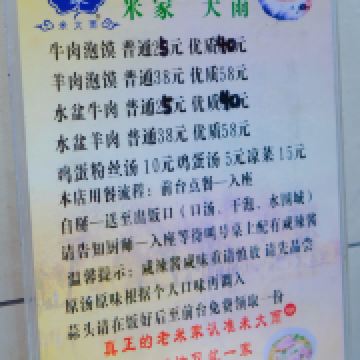 米大雨
米家 大雨
牛肉泡馍 普通25元 优质40元
羊肉泡馍 普通38元 优质58元
水盆牛肉 普通25元 优质40元
水盆羊肉 普通38元 优质58元
鸡蛋粉丝汤 10元鸡蛋汤 5元凉菜 15元
本店用餐流程：前台点餐—入座
自掰—送至出饭口（口汤、干泡、水围城）
请告知厨师—入座等待叫号桌上配有咸辣酱
温馨提示：咸辣酱咸味重请慎放 请先品尝
原汤原味根据个人口味再调入
蒜头请在饭好后至前台免费领取一份
真正的老米家认准米大雨
一家